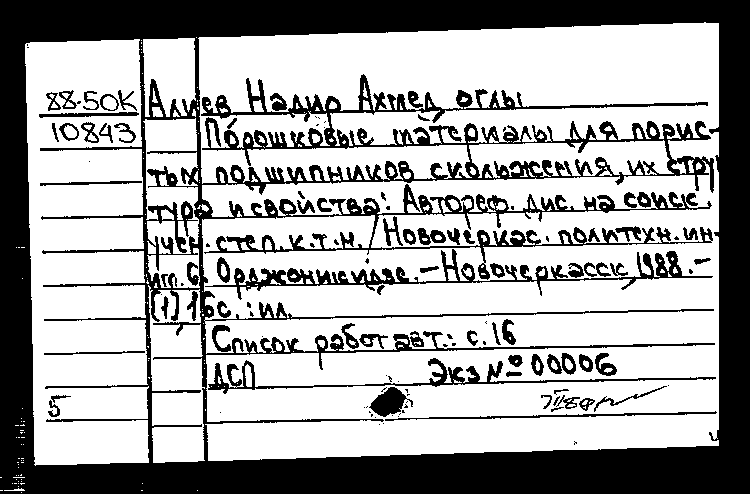 88-50К Алиев Надир Ахмед оглы
10843 Порошковые материалы для порис-
тых подшипников скольжения, их струк
тура и свойства: Автореф. дис. на соиск.
учен. степ. к.т.н. / Новочеркас. политехн. ин-
им. С. Орджоникидзе. – Новочеркасск, 1988. –
[1], 16с. : ил.
Список работ авт.: с. 16
ДСП Экз № 00006
5